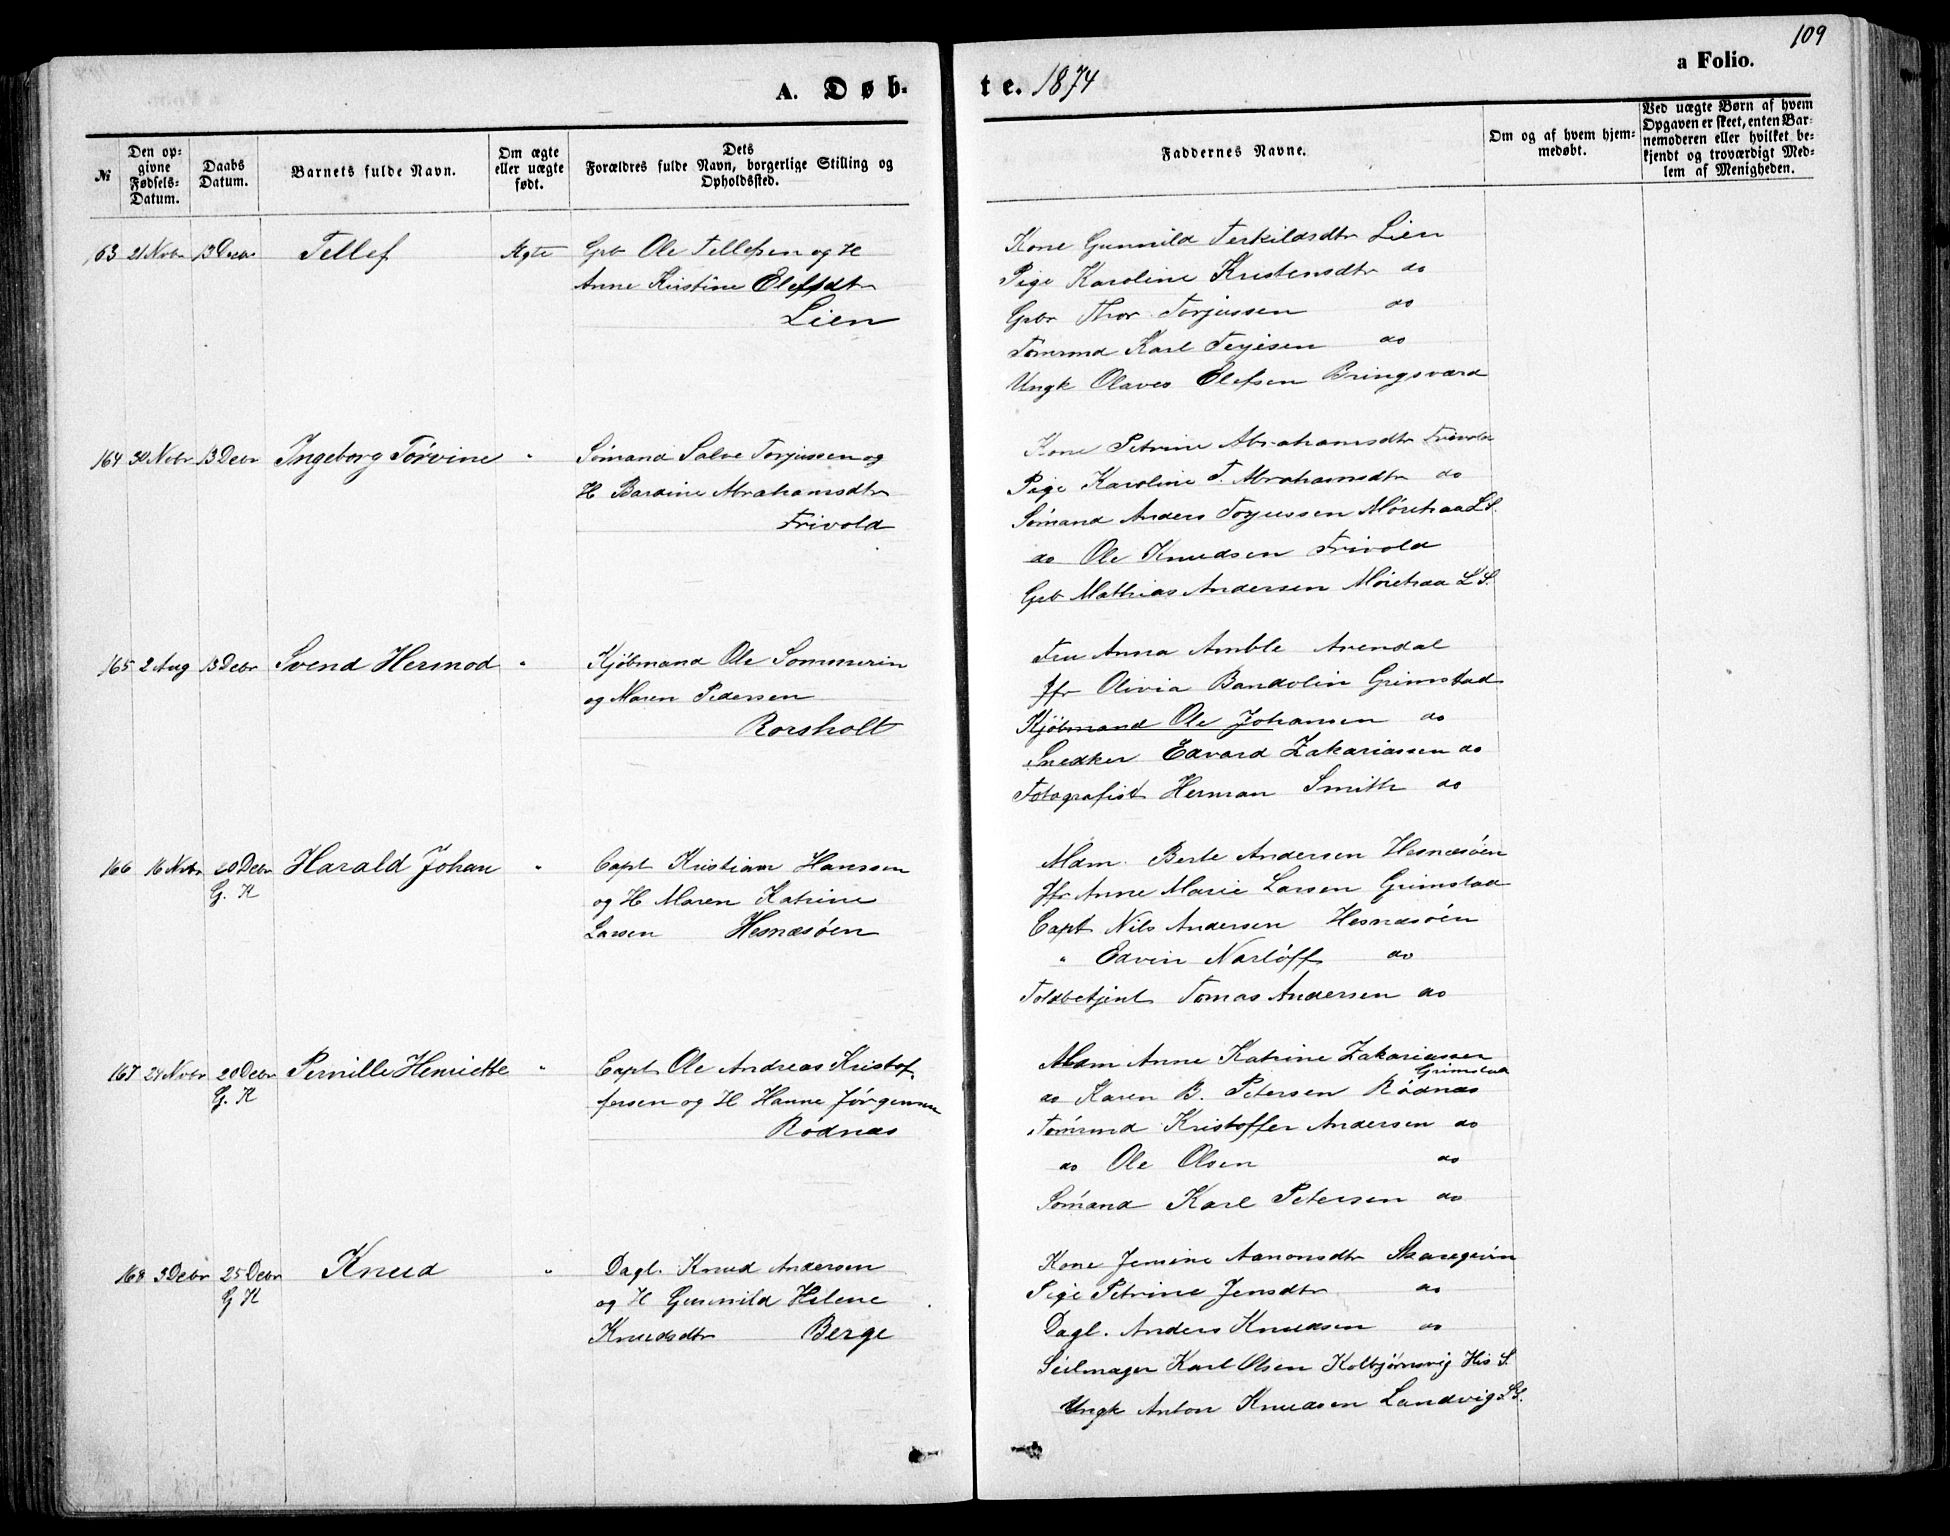 109
A. Døb-
te. 1874
a Folio.
№
Den op-
givne
Fødsels-
Datum.
Daabs
Datum.
Barnets fulde Navn.
Om ægte
eller uægte
født.
Dets
Forældres fulde Navn, borgerlige Stilling og
Opholdssted.
Faddernes Navne.
Om og af hvem hjem-
medøbt.
Ved uægte Børn af hvem
Opgaven er skeet, enten Bar-
nemoderen eller hvilket be-
kjendt og troværdigt Med-
lem af Menigheden.
163 21 Novbr 13 Decbr Tellef Ægte Gbr Ole Tellefsen og H
Anne Kirstine Olefsdtr
Lien
Kone Gunnild Terkildsdtr Lien
Pige Karoline Kristensdtr do
Gbr Thor Torjussen do
Tømrmd Karl Terjesen do
Ungk Olaves Olefsen Bringsværd
164 30 Novbr 13 Debr Ingeborg Torvine " Sømand Salve Torjussen og
H Bardine Abrahamsdtr
Frivold
Kone Petrine Abrahamsdtr Frivold
Pige Karoline T. Abrahamsdtr do
Sømand Anders Torjussen Moretraa L S.
do Ole Knudsen Frivold
Gbr Mathias Andersen Moretraa L S.
165 2 Aug 13 Debr Svend Hermod " Kjøbmand Ole Sommerin
og Maren Pedersen
Rorsholt
Fru Anna Amble Arendal
Jfr Olivia Bandolin Grimstad
Kjøbmand Ole Johansen do
Snedker Edvard Zakariassen do
Fotografist Herman Smith do
166 16 Novbr 20 Debr Harald Johan " Capt Kristian Hanssen
G. K
og H Maren Katrine
Larsen Hesnæsøen
Mdm. Berte Andersen Hesnæsøen
Jfr Anne Marie Larsen Grimstad
Capt Nils Andersen Hesnæsøen
" Edvin Narløff do
Toldbetjent Tomas Andersen do
167 24 Novbr 20 Debr Pernille Henriette " Capt Ole Andreas Kristof
G. K
fersen og H Hanne Jørgensen
Rodnæs
Mdm Anne Katrine Zakariassen
Grimstad
do Karen B. Petersen Rødnæs
Tømrmd Kristoffer Andersen do
do Ole Olsen do
Sømand Karl Petersen do
168 3 Debr 25 Debr Knud " Dagl. Knud Andersen
G K
og H Gunnild Helene
Knudsdtr Berge
Kone Jensine Aanonsdtr
Pige Petrine Jensdtr do
Dagl. Anders Knudsen do
Seilmager Karl Olsen Kolbjørnsvig His S.
Ungk Anton Knudsen Landvig L S.